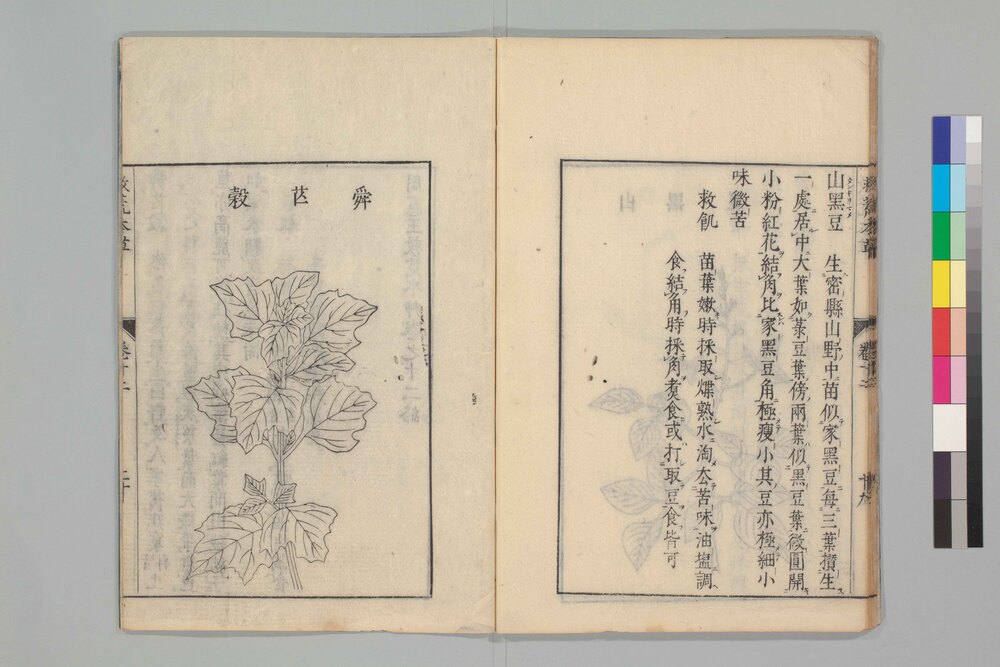 救荒本草
卷十二
十九
山黑豆　生密縣山野中苗似家黑豆每三葉攢生
一處居中大葉如菉豆葉傍兩葉似黑豆葉微圓開
小粉紅花結角比家黑豆角極瘦小其豆亦極細小
味微苦
救飢　苗葉嫩時採取煠熟水淘去苦味油塩調
食結角時採角煑食或打取豆食皆可
舜芒穀
救荒本草
卷十二
二十